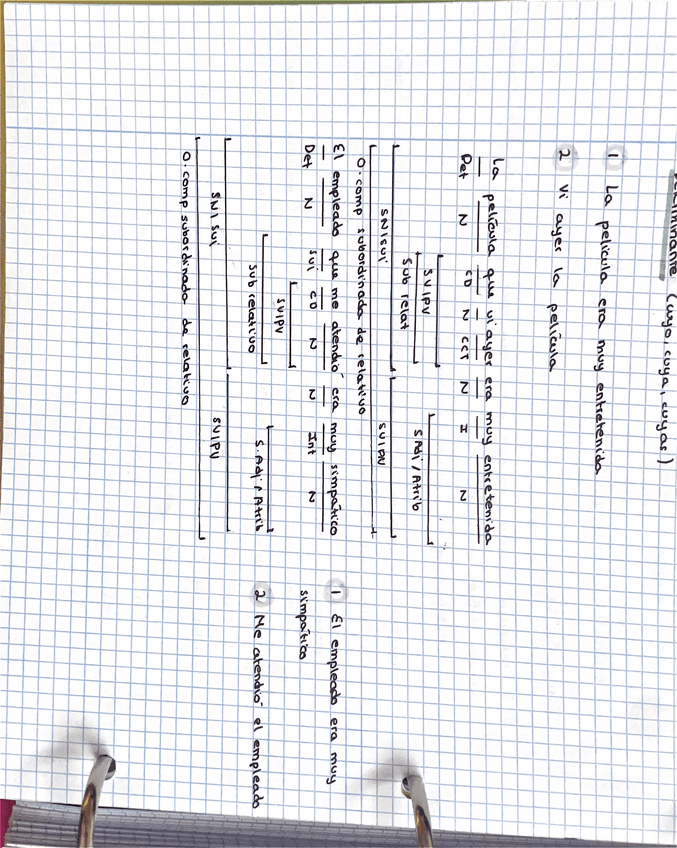 (cuyo, cuya, cuyas)
1 La película era muy entretenida
2 Vi ayer la película
La película que vi ayer era muy entretenida
Det N CD N CCT N I N
SV/PV S Adj / Atrib
Sub relat
SN/suj SV/PV
O. comp subordinada de relativo
El empleado que me atendió era muy simpático
Det N suj CD N N Int N
SV/PV
sub relativo S. Adj / Atrib
SN/suj SV/PV
O. comp subordinada de relativo
1 El empleado era muy
simpático
2 Me atendió el empleado